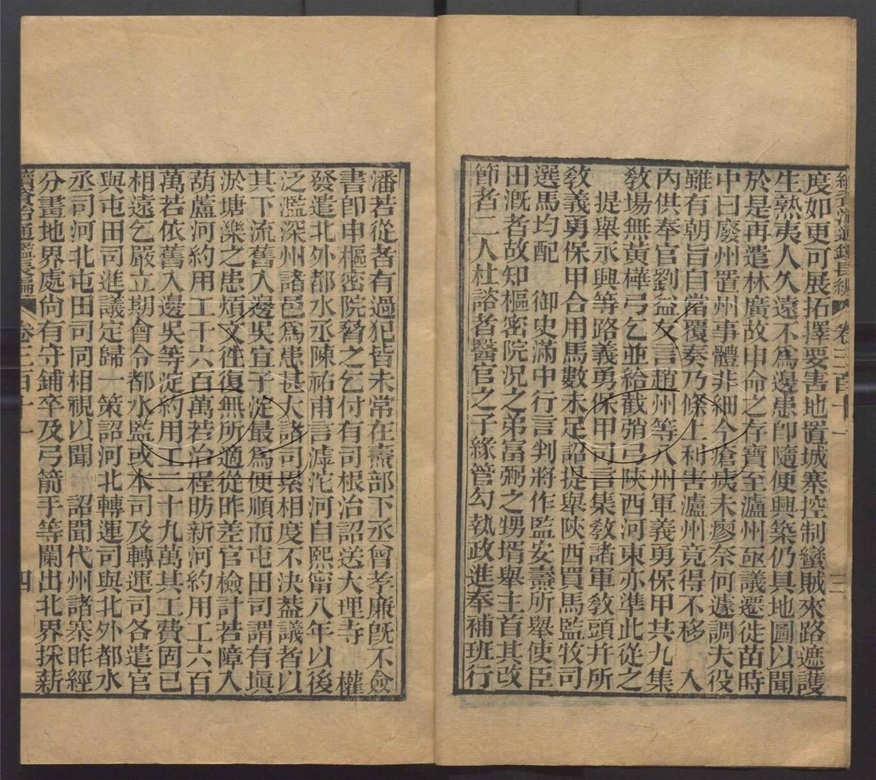 續資治通鑑長編 卷三百十一 三
度如更可展拓擇要害地置城寨控制蠻賊來路遮護
生熟夷人久遠不爲邊患卽隨便興築仍具地圖以聞
於是再遣林廣故申命之存寶至瀘州亟議遷徙苗時
中曰廢州置州事體非細今瘡痍未瘳奈何遽調夫役
雖有朝旨自當覆奏乃條上利害瀘州竟得不移 入
內供奉官劉益友言趙州等八州軍義勇保甲共九集
敎場無黃樺弓乞並給截弰弓陝西河東亦準此從之
提舉永興等路義勇保甲司言集敎諸軍敎頭幷所
敎義勇保甲合用馬數未足詔提舉陝西買馬監牧司
選馬均配 御史滿中行言判將作監安燾所舉使臣
田漑者故知樞密院況之弟富弼之甥壻舉主首其改
節者二人杜諮者醫官之子緣管勾執政進奉補班行
潘若從者有過犯皆未常在燾部下丞曾孝廉旣不僉
書卽申樞密院脅之乞付有司根治詔送大理寺 權
發遣北外都水丞陳祐甫言滹沱河自熙甯八年以後
泛濫深州諸邑爲患甚大諸司累相度不決葢議者以
其下流舊入邊吳宜子淀最爲便順而屯田司謂有塡
淤塘濼之患煩文往復無所適從昨差官檢計若障入
葫蘆河約用工千六百萬若治程昉新河約用工六百
萬若依舊入邊吳等淀約用工二十九萬其工費固已
相遠乞嚴立期會令都水監或本司及轉運司各遣官
與屯田司進議定歸一策詔河北轉運司與北外都水
丞司河北屯田司同相視以聞 詔聞代州諸寨昨經
分畫地界處尙有守鋪卒及弓箭手等闌出北界採薪
續資治通鑑長編 卷三百十一 四